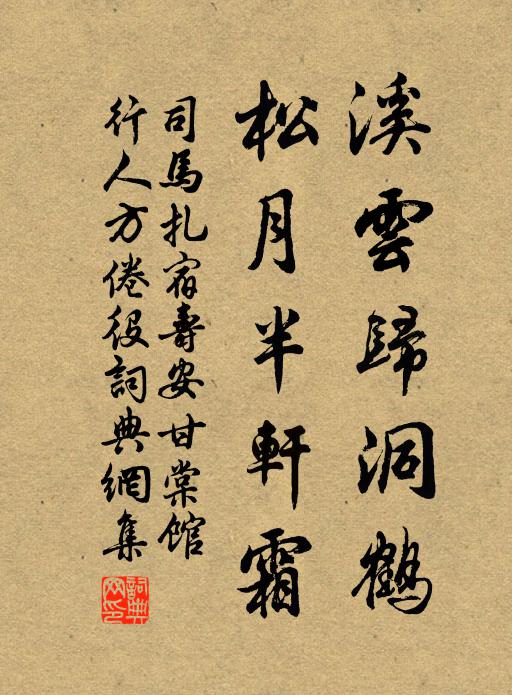 溪雲歸洞鶴
松月半軒霜
司馬扎宿壽安甘棠館
行人方倦役詞典網集
詞典
网印